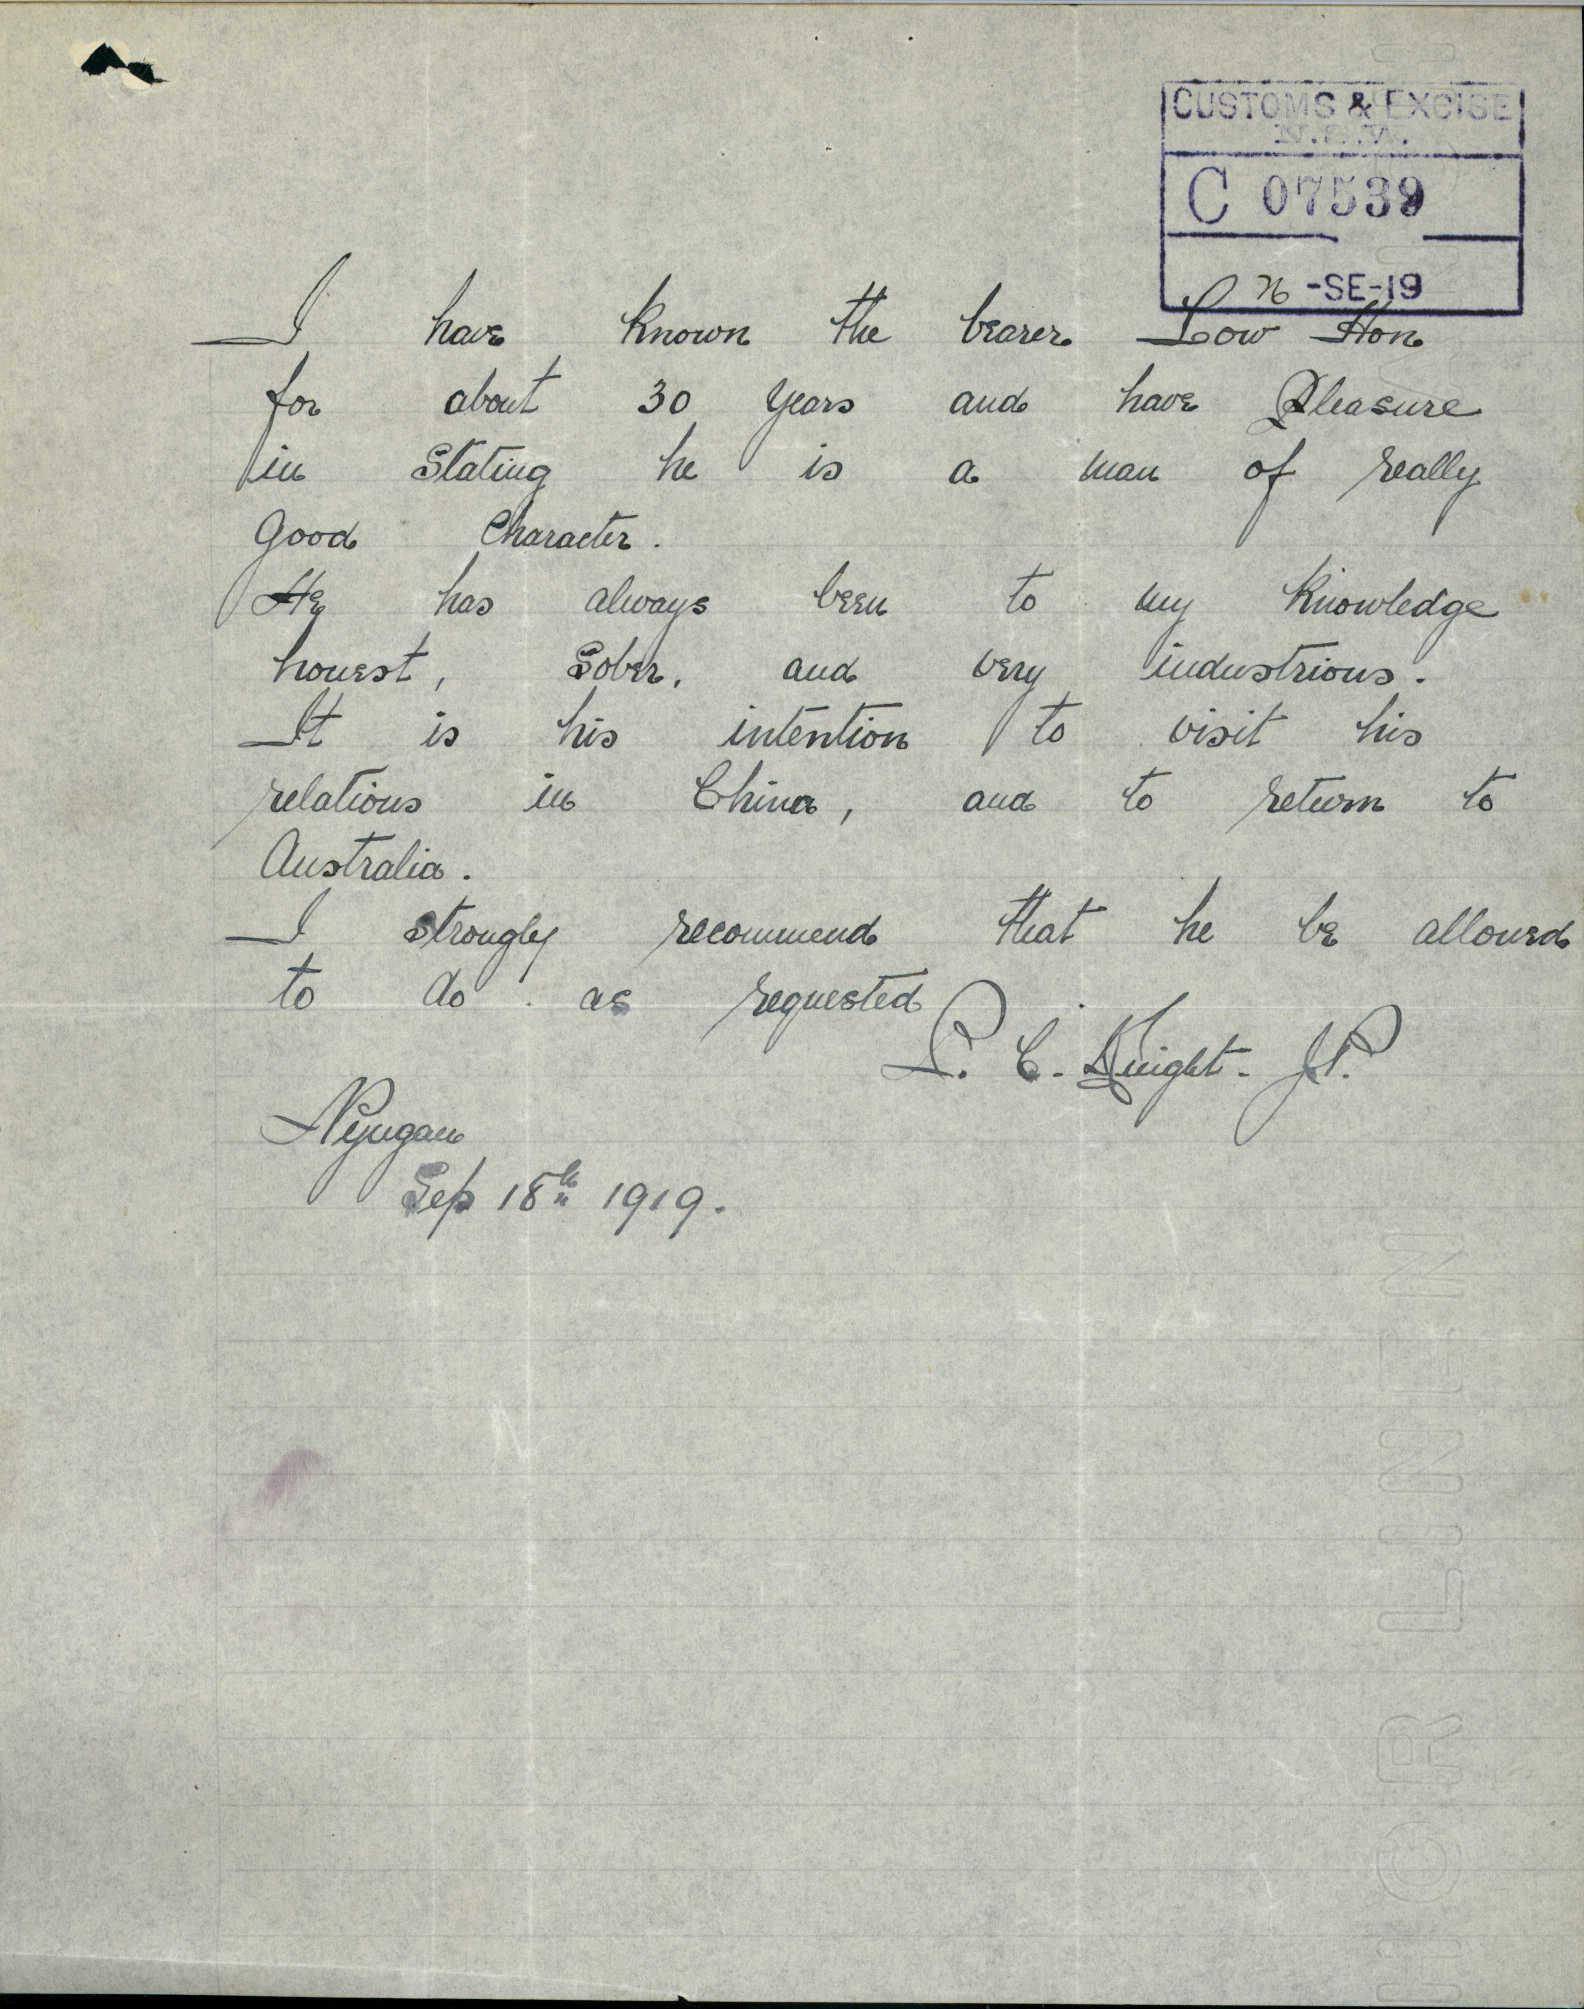 CUSTOMS & EXCISE
N.S.W.
C 07539
26 -SE-19
I have known the bearer Low Hon
for about 30 years and have Pleasure
in Stating he is a man of really
good Character.
He has always been to my knowledge
honest, Sober, and very industrious.
It is his intention to visit his
relations in China, and to return to
Australia.
I strongly recommend that he be allowed
to do as requested
L. C. Knight. J.P.
Nyngan
Sep 18th 1919.
LINEN